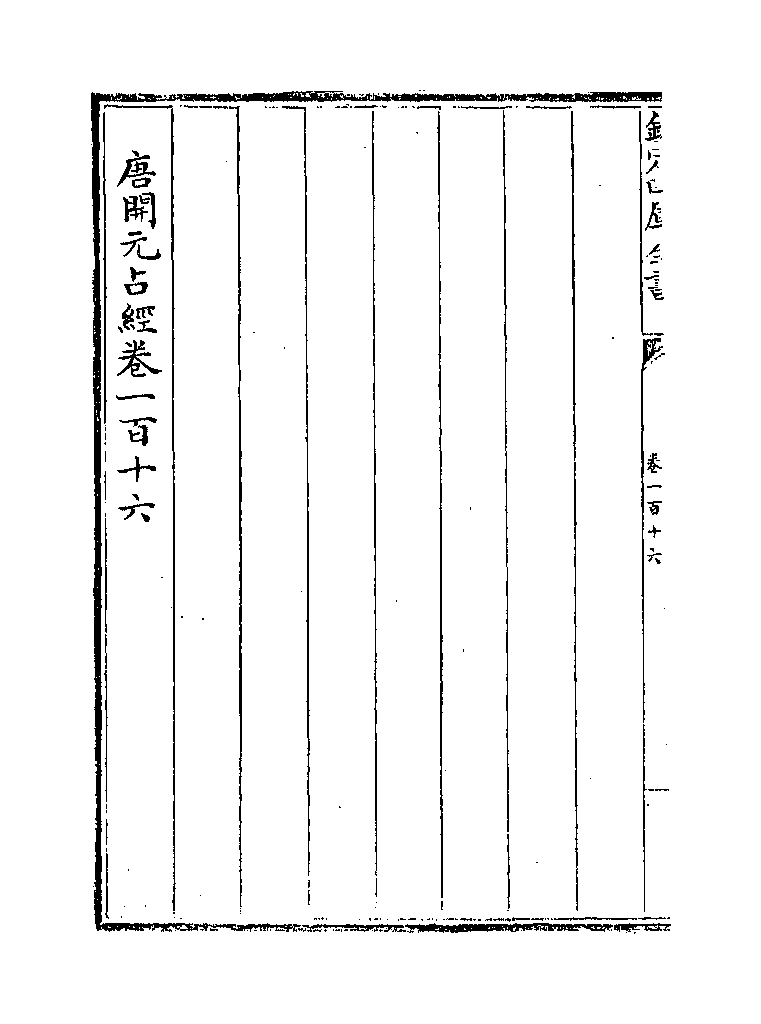 欽定四庫全書
卷一百十六
唐開元占經卷一百十六